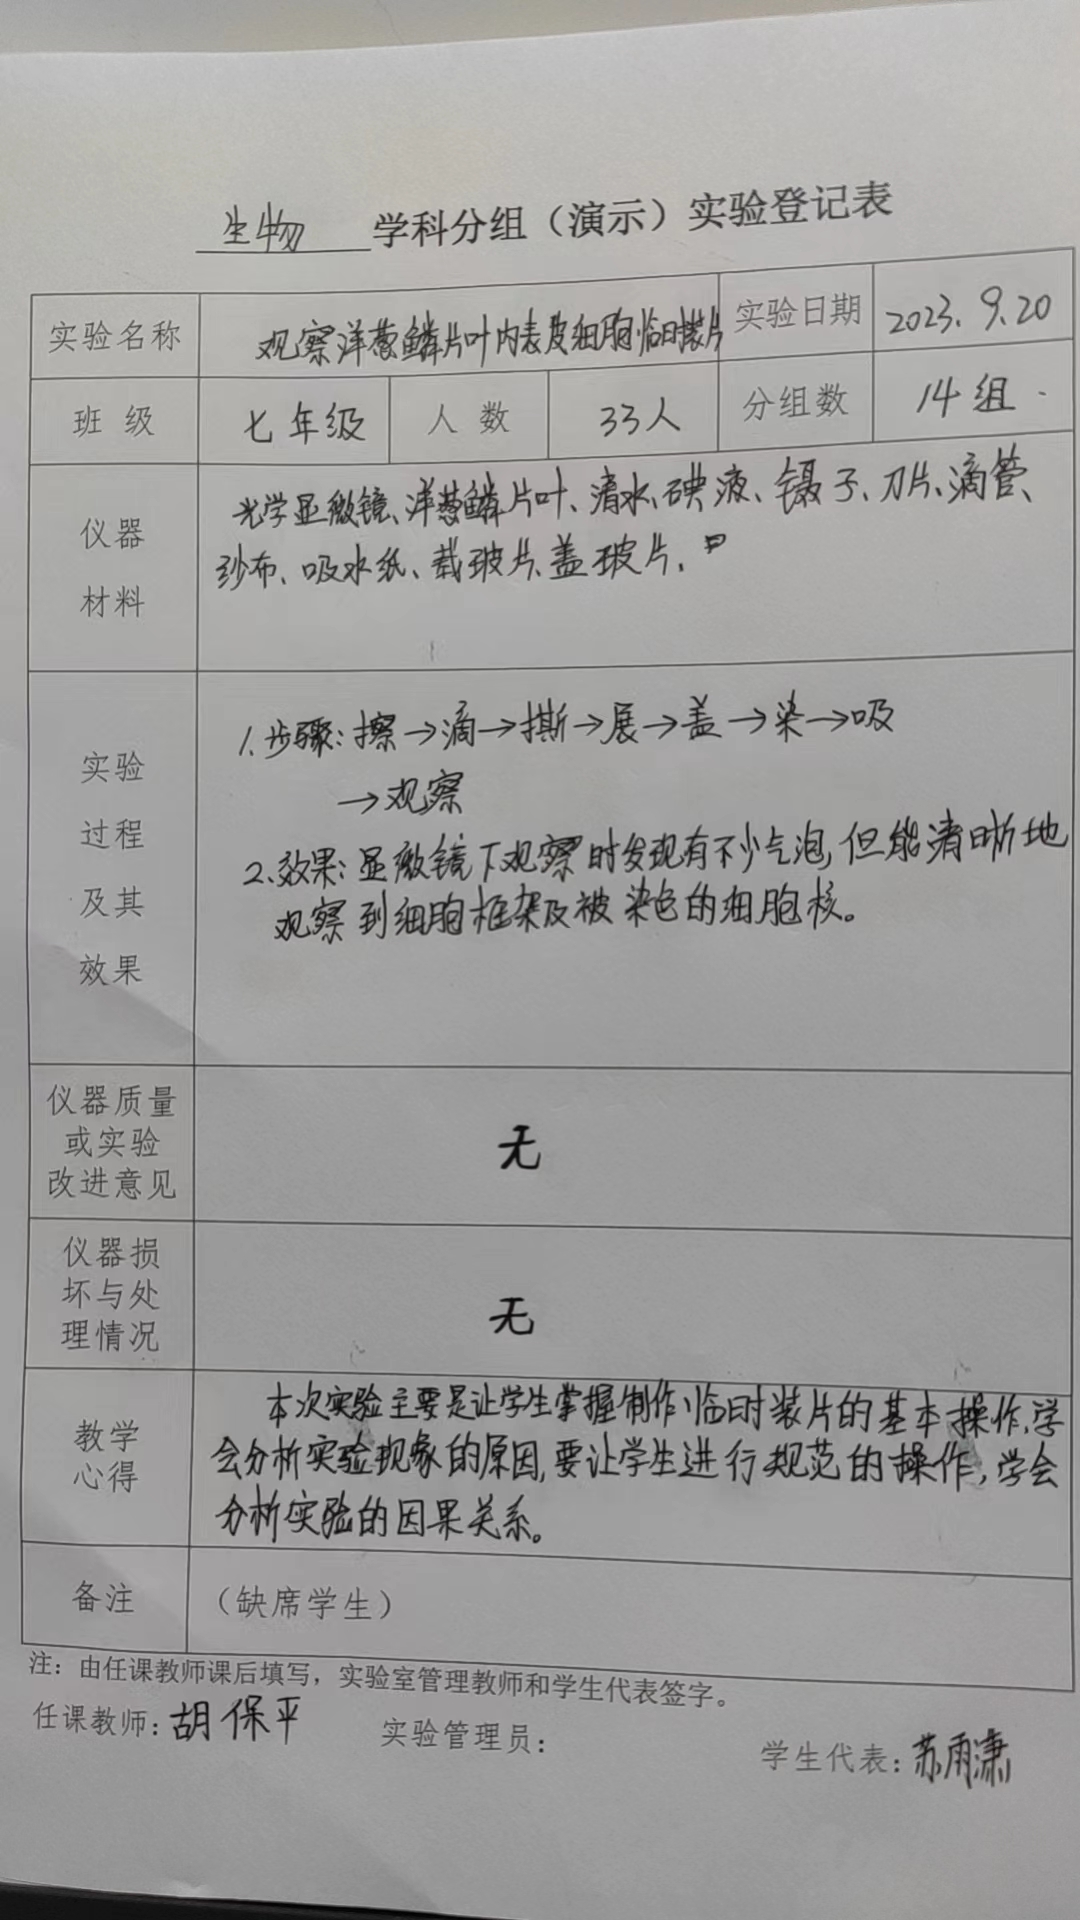 生物 学科分组（演示）实验登记表
实验名称 观察洋葱鳞片叶内表皮细胞临时装片 实验日期 2023.9.20
班 级 七年级 人 数 33人 分组数 14组.
仪器 光学显微镜、洋葱鳞片叶、清水、碘液、镊子、刀片、滴管、
材料 纱布、吸水纸、载玻片、盖玻片、
实验 1.步骤：擦→滴→撕→展→盖→染→吸
→观察
过程 2.效果：显微镜下观察时发现有不少气泡，但能清晰地
及其 观察到细胞框架及被染色的细胞核。
效果
仪器质量
或实验 无
改进意见
仪器损
坏与处 无
理情况
本次实验主要是让学生掌握制作临时装片的基本操作，学
教学 会分析实验现象的原因，要让学生进行规范的操作，学会
心得 分析实验的因果关系。
备注 （缺席学生）
注：由任课教师课后填写，实验室管理教师和学生代表签字。
任课教师：胡保平 实验管理员： 学生代表：苏雨潇